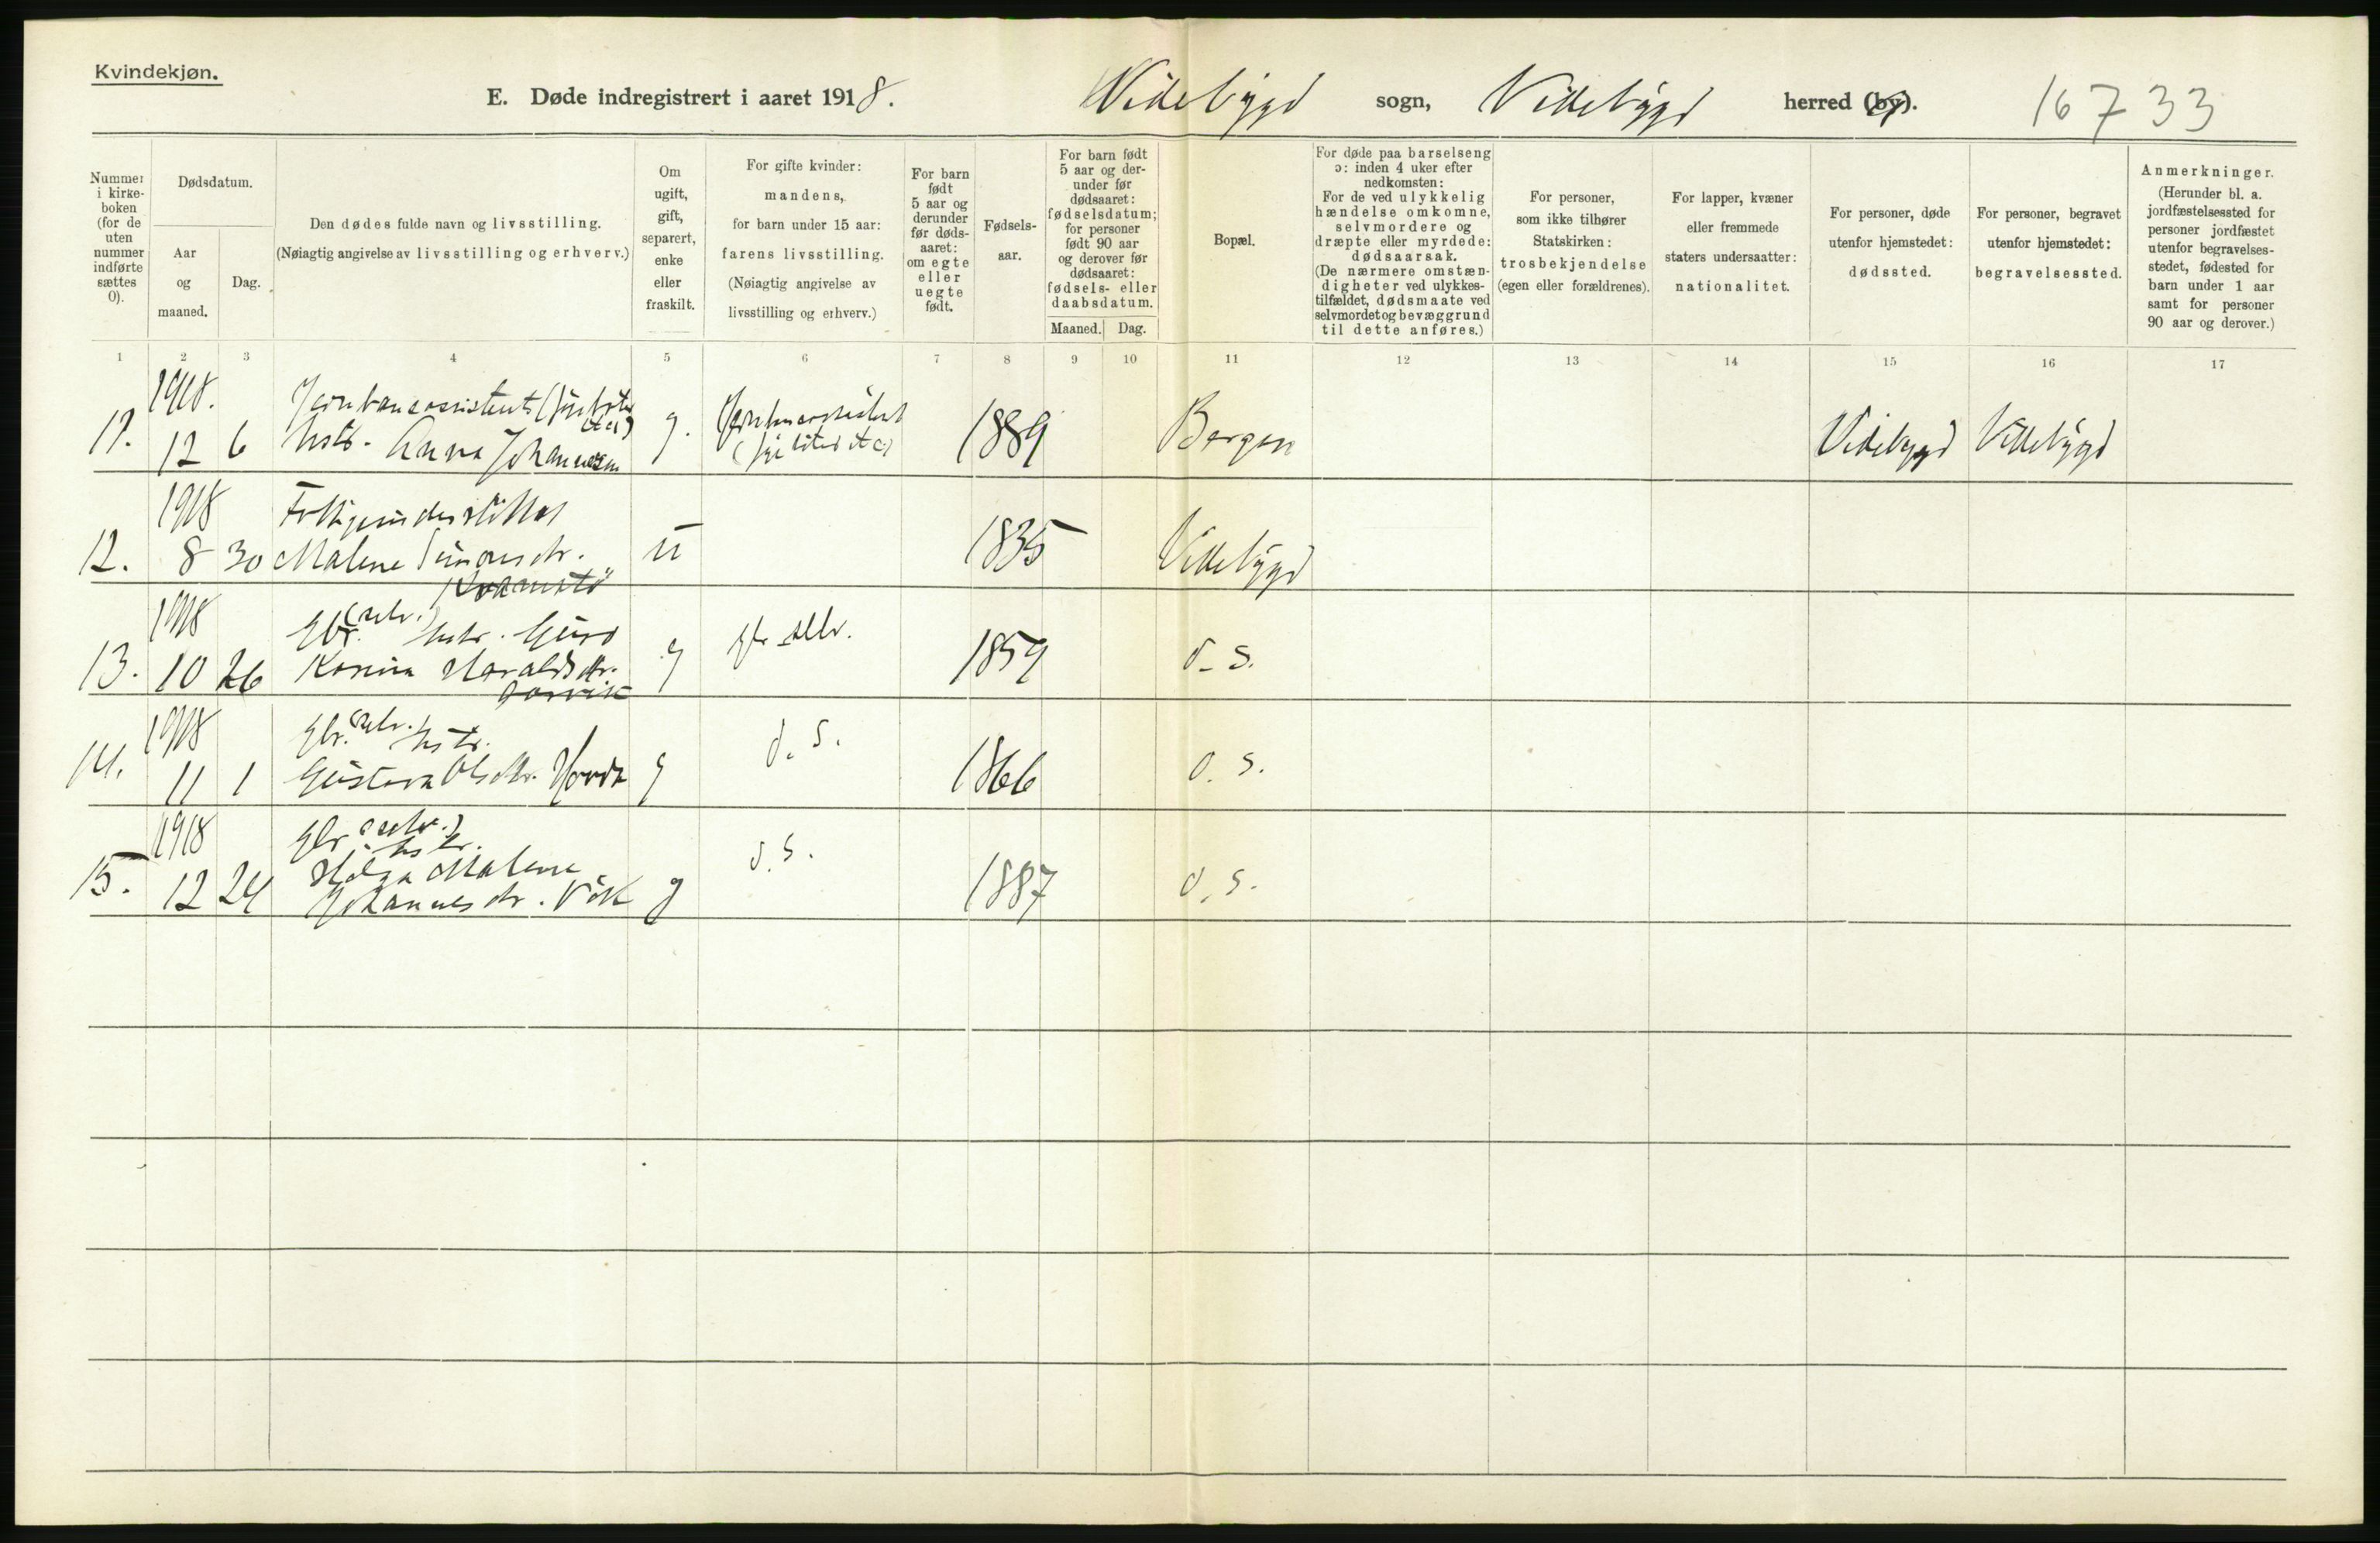 Kvindekjøn.
E. Døde indregistrert i aaret 1918. Vikebygd sogn, Vikebygd herred (by). 16733
Nummer i kirke-boken (for de uten nummer indførte sættes 0).
Dødsdatum.
Aar og maaned.
Dag.
Den dødes fulde navn og livsstilling.
(Nøiagtig angivelse av livsstilling og erhverv.)
Om ugift, gift, separert, enke eller fraskilt.
For gifte kvinder:
mandens,
for barn under 15 aar:
farens livsstilling.
(Nøiagtig angivelse av
livsstilling og erhverv.)
For barn
født
5 aar og
derunder
før døds-
aaret:
om egte
eller
uegte
født.
Fødsels-
aar.
For barn født
5 aar og der-
under før
dødsaaret:
fødselsdatum;
for personer
født 90 aar
og derover før
dødsaaret:
fødsels- eller
daabsdatum.
Maaned. Dag.
Bopæl.
For døde paa barselseng
ɔ: inden 4 uker efter
nedkomsten:
For de ved ulykkelig
hændelse omkomne,
selvmordere og
dræpte eller myrdede:
dødsaarsak.
(De nærmere omstæn-
digheter ved ulykkes-
tilfældet, dødsmaate ved
selvmordet og bevæggrund
til dette anføres.)
For personer,
som ikke tilhører
Statskirken:
trosbekjendelse
(egen eller forældrenes).
For lapper, kvæner
eller fremmede
staters undersaatter:
nationalitet.
For personer, døde
utenfor hjemstedet:
dødssted.
For personer, begravet
utenfor hjemstedet:
begravelsessted.
Anmerkninger.
(Herunder bl. a.
jordfæstelsessted for
personer jordfæstet
utenfor begravelses-
stedet, fødested for
barn under 1 aar
samt for personer
90 aar og derover.)
1 2 3 4 5 6 7 8 9 10 11 12 13 14 15 16 17
1918.
11. 12 6 Jernbaneassistent
hstr. Anna Johannesen g. 1889 Bergen Vikebygd Vikebygd
1918
12. 8 30 Malene Simonsdtr. u 1835 Vikebygd
1918
13. 10 26 Gbr. (selv.) hstr. Guro
Korina Haraldsdtr. g gbr selv. 1859 d. s.
1918
14. 11 1 Gbr. selv. hstr.
Gustava Olsdtr. g d. s. 1866 d. s.
1918
15. 12 24 Gbr (selv.) hstr.
Helga Malene
Johannesdtr. Vik g d. s. 1887 d. s.